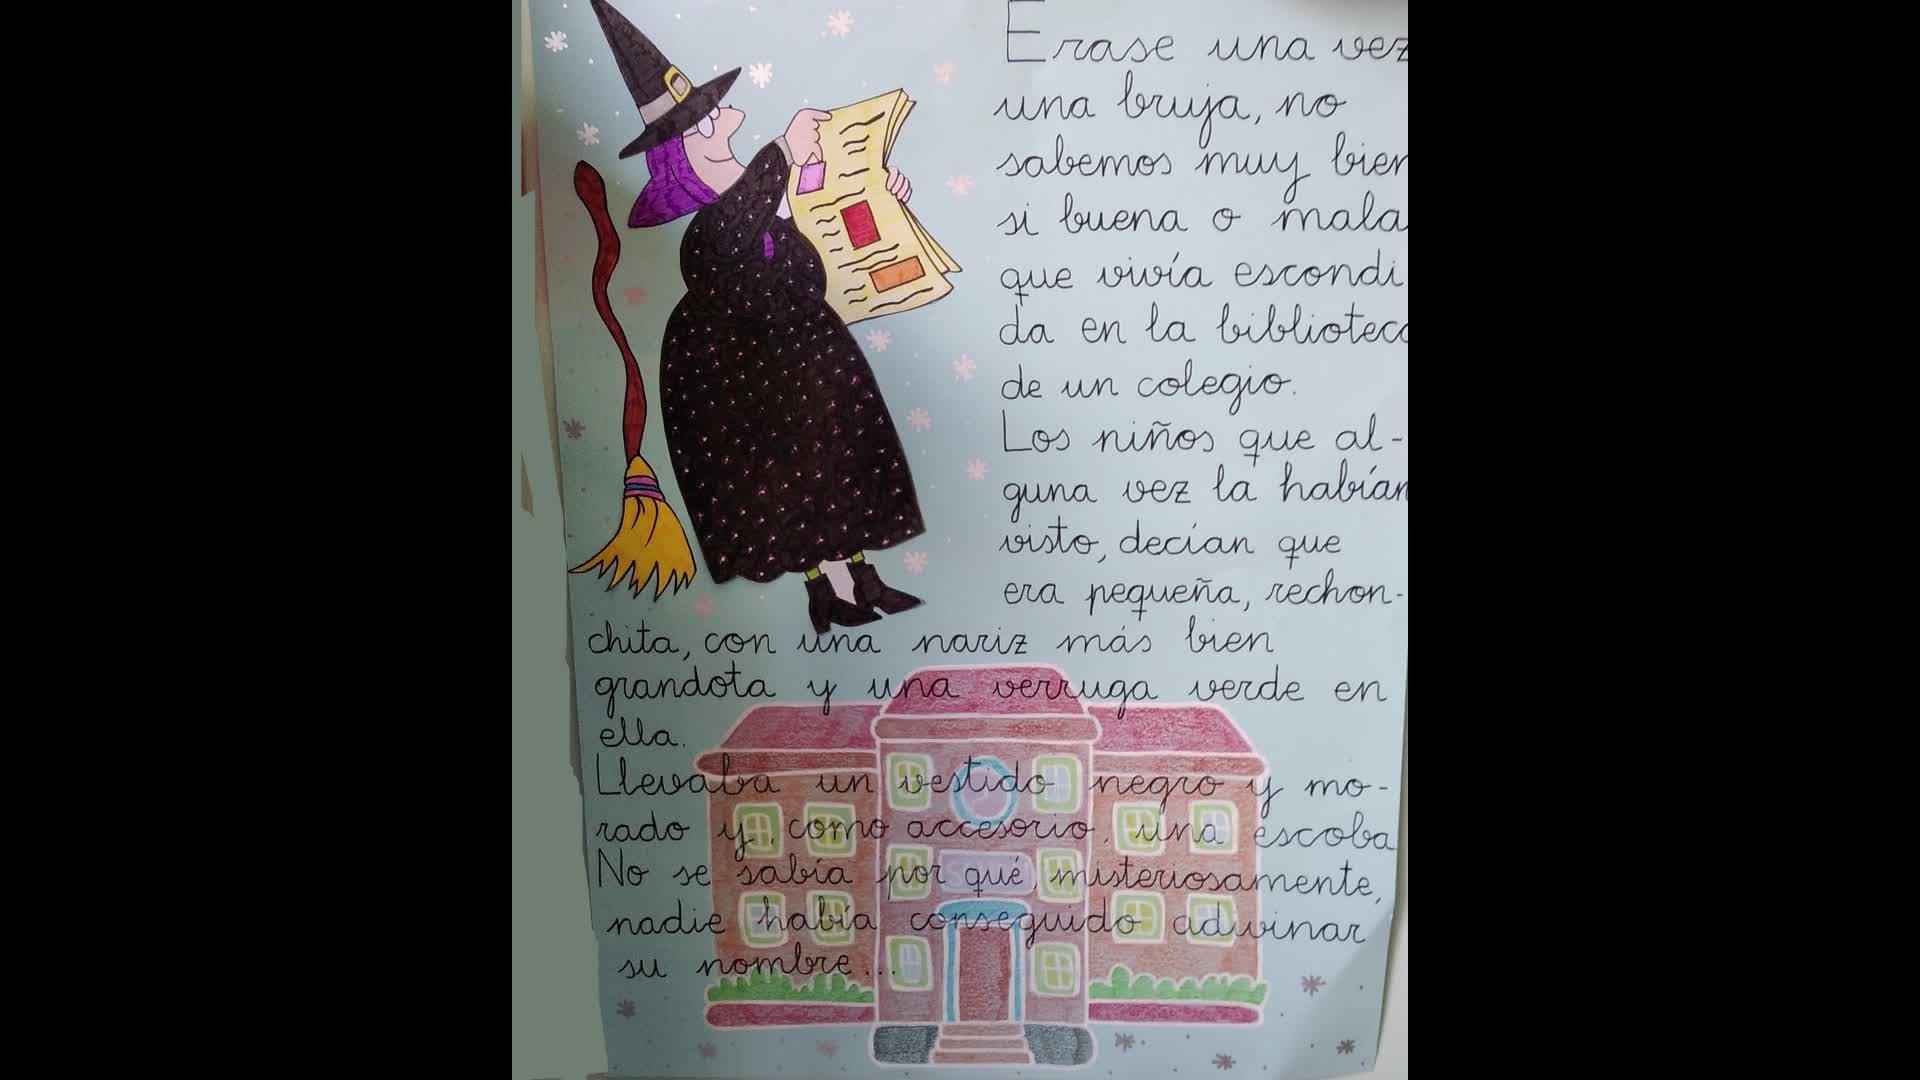 Erase una vez
una bruja, no
sabemos muy bien
si buena o mala
que vivía escondi
da en la biblioteca
de un colegio.
Los niños que al-
guna vez la habían
visto, decían que
era pequeña, rechon-
chita, con una nariz más bien
grandota y una verruga verde en
ella.
Llevaba un vestido negro y mo-
rado y, como accesorio, una escoba
No se sabía por qué, misteriosamente,
nadie había conseguido adivinar
su nombre...